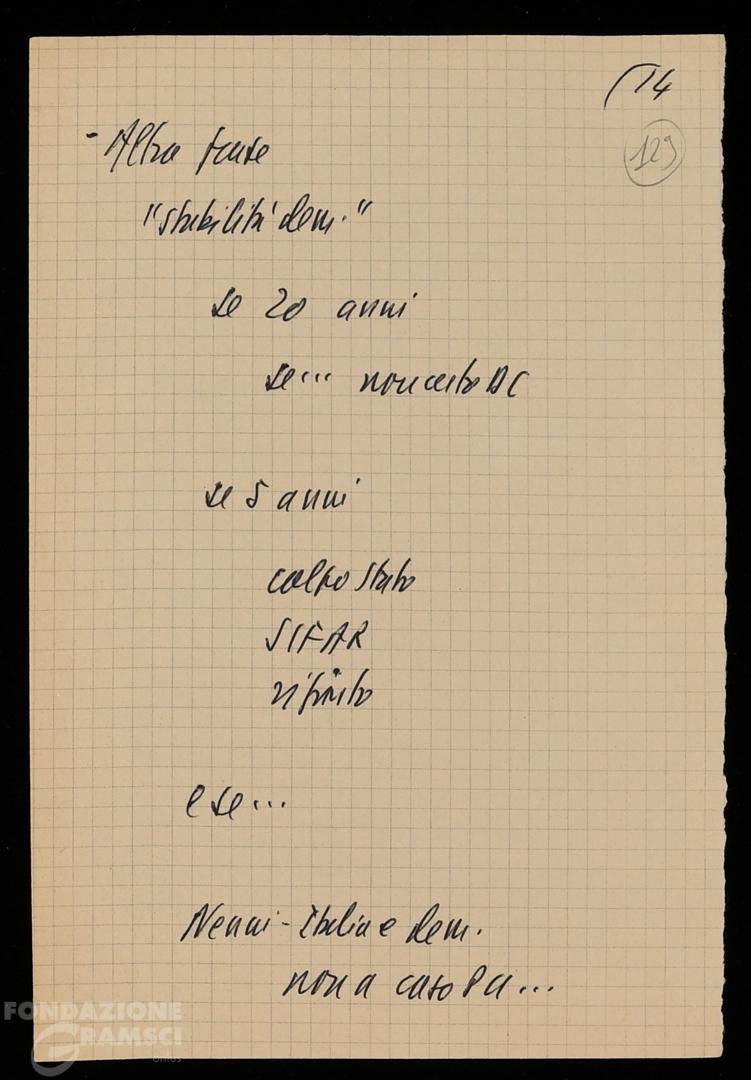 (14
123
- Altra frase
"stabilità dem."
se 20 anni
se... non certo DC
se 5 anni
colpo Stato
SIFAR
rifiuto
e se...
Nenni - Italia e dem.
non a caso PCI...
FONDAZIONE
GRAMSCI
onlus